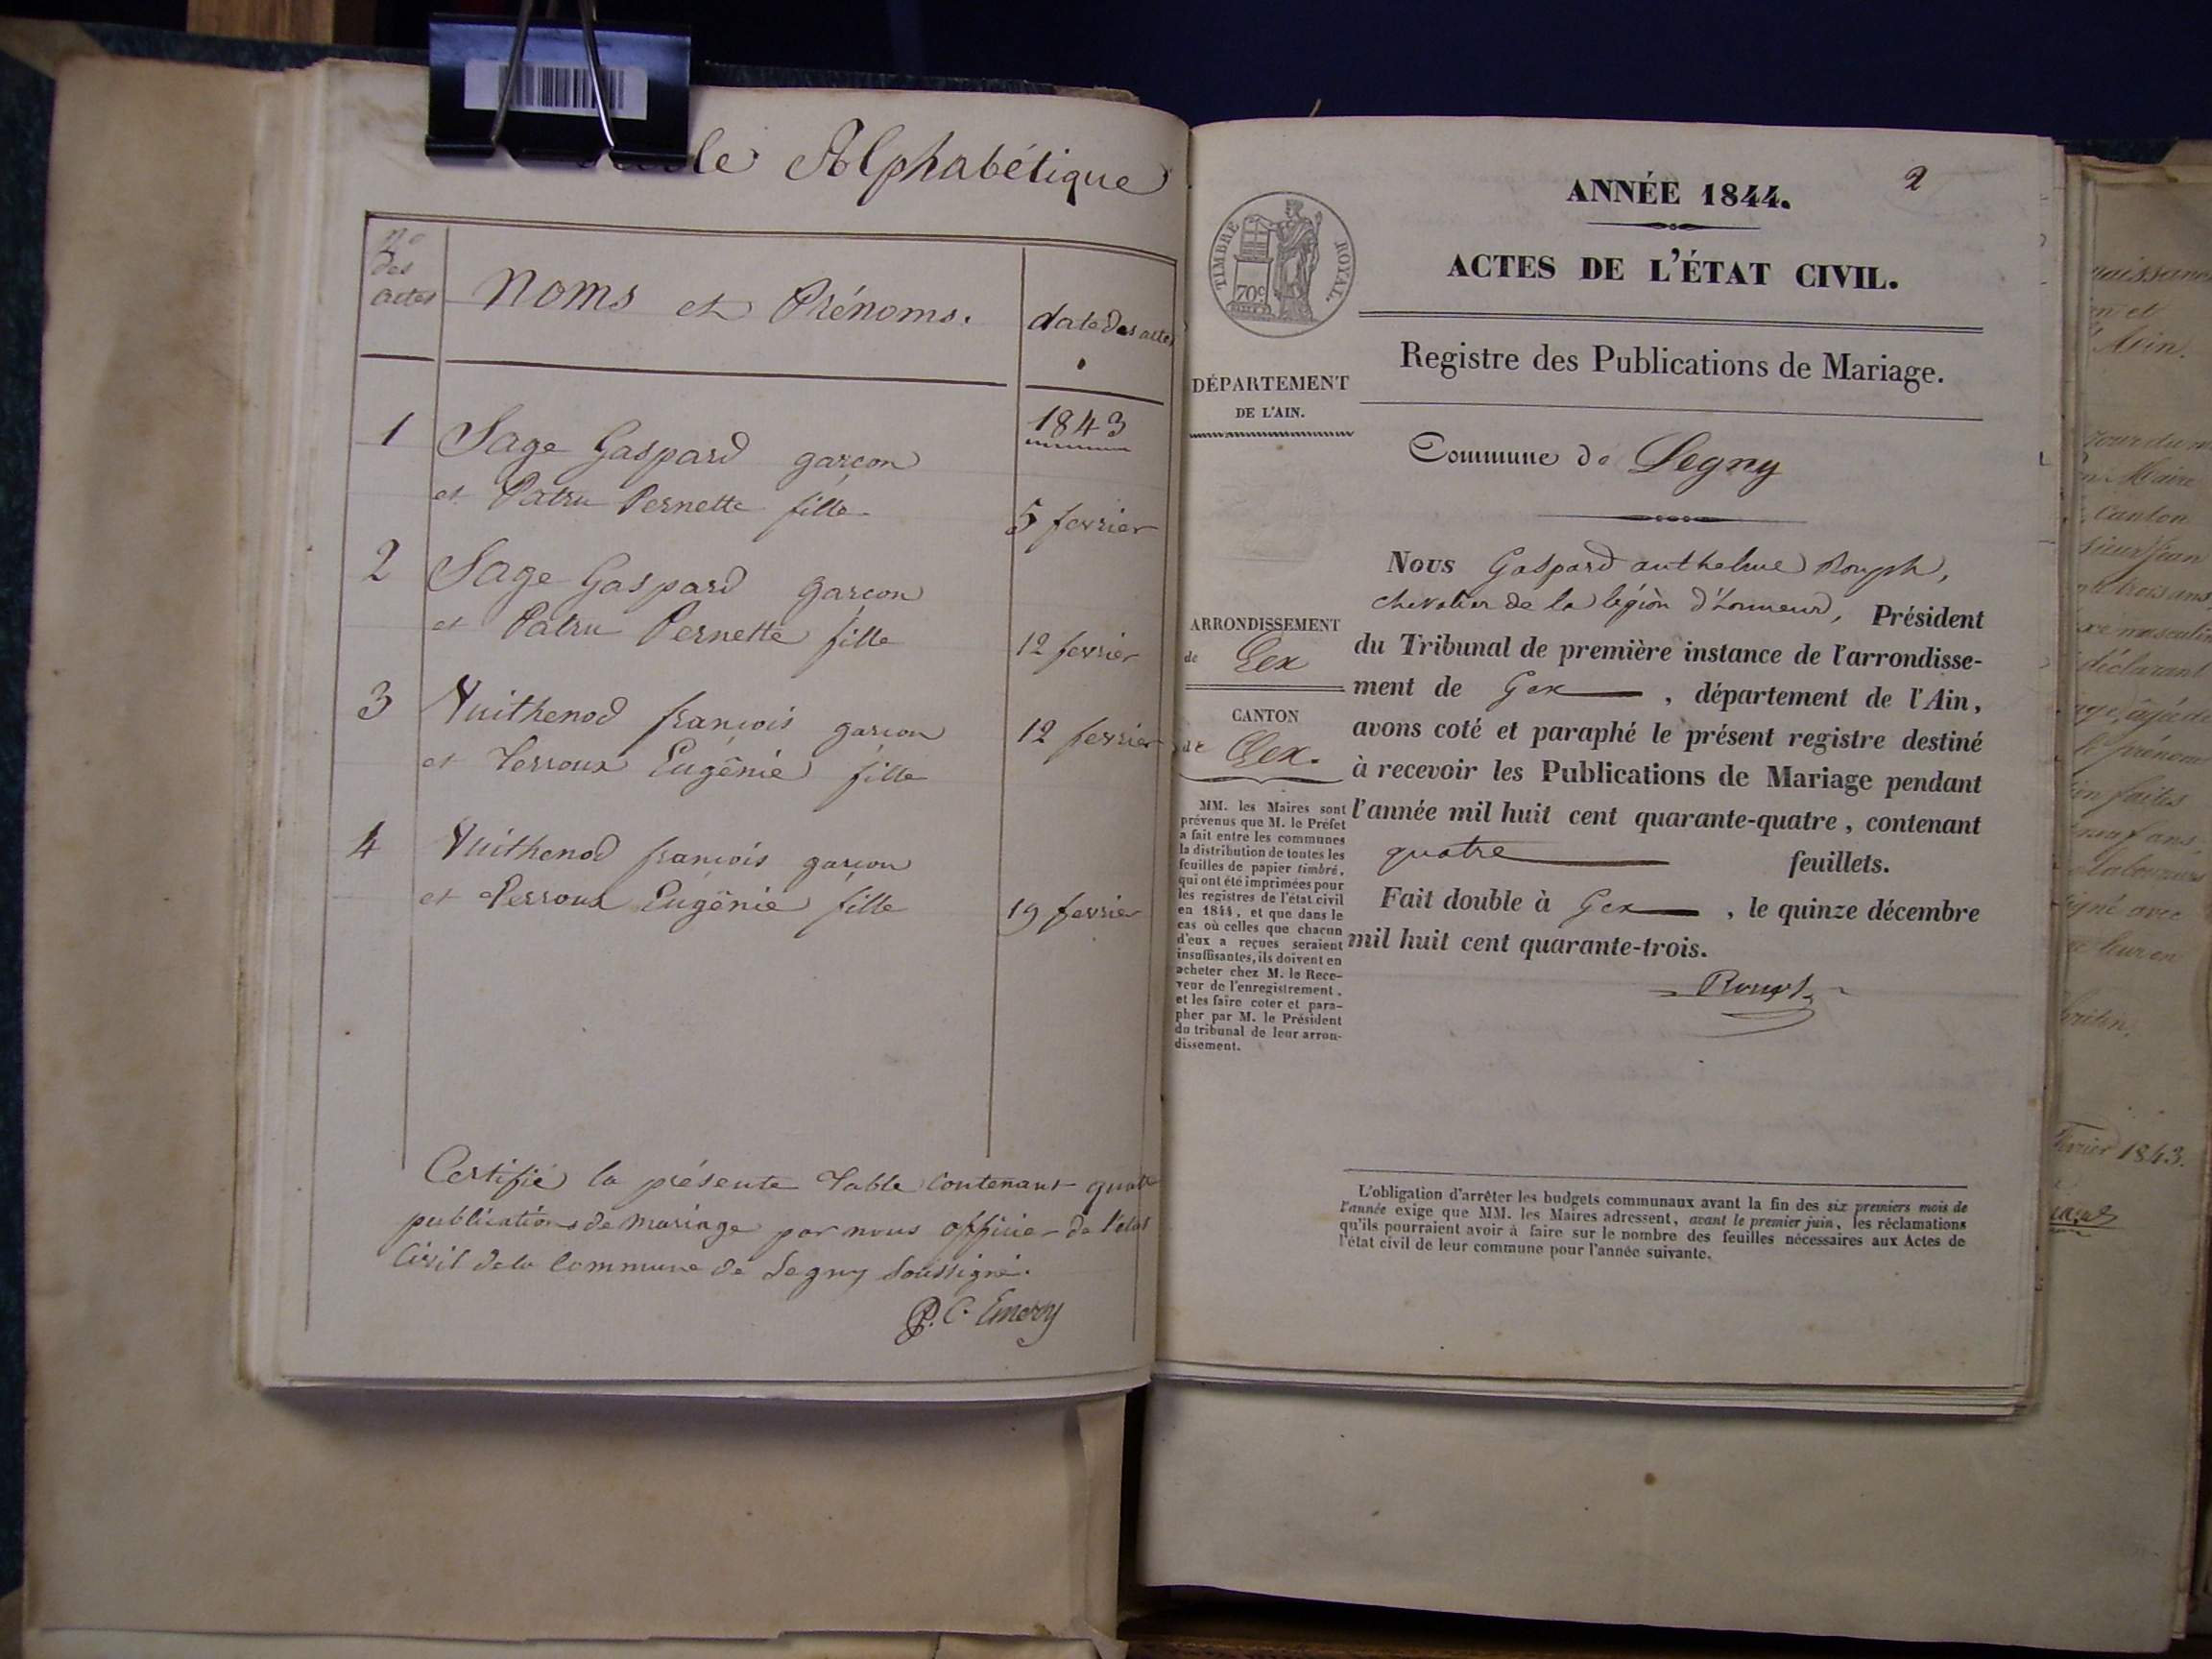 Table Alphabétique
no des actes
Noms et Prénoms.
date des actes
1843
1 Sage Gaspard garçon
et Patru Pernette fille
5 fevrier
2 Sage Gaspard garcon
et Patru Pernette fille
12 fevrier
3 Vuithenod francois garcon
et Perroux Eugénie fille
12 fevrier
4 Vuithenod francois garcon
et Perroux Eugénie fille
19 fevrier
Certifié la présente Table contenant quatre
publications de mariage par nous officier de l'état
Civil de la Commune de Segny Soussigné.
P. C. Emery
2
ANNÉE 1844.
ACTES DE L'ÉTAT CIVIL.
TIMBRE ROYAL.
70c
Registre des Publications de Mariage.
DÉPARTEMENT
DE L'AIN.
Commune de Segny
ARRONDISSEMENT
de Gex
CANTON
de Gex.
MM. les Maires sont
prévenus que M. le Préfet
a fait entre les communes
la distribution de toutes les
feuilles de papier timbré,
qui ont été imprimées pour
les registres de l'état civil
en 1844, et que dans le
cas où celles que chacun
d'eux a reçues seraient
insuffisantes, ils doivent en
acheter chez M. le Rece-
veur de l'enregistrement,
et les faire coter et para-
pher par M. le Président
du tribunal de leur arron-
dissement.
Nous Gaspard anthelme Rouph,
chevalier de la légion d'honneur, Président
du Tribunal de première instance de l'arrondisse-
ment de Gex, département de l'Ain,
avons coté et paraphé le présent registre destiné
à recevoir les Publications de Mariage pendant
l'année mil huit cent quarante-quatre, contenant
quatre feuillets.
Fait double à Gex, le quinze décembre
mil huit cent quarante-trois.
Rouph
L'obligation d'arrêter les budgets communaux avant la fin des six premiers mois de
l'année exige que MM. les Maires adressent, avant le premier juin, les réclamations
qu'ils pourraient avoir à faire sur le nombre des feuilles nécessaires aux Actes de
l'état civil de leur commune pour l'année suivante.
en et
Maire
Canton
trois ans
déclarant
prénom
faites
ans,
signé avec
1843.